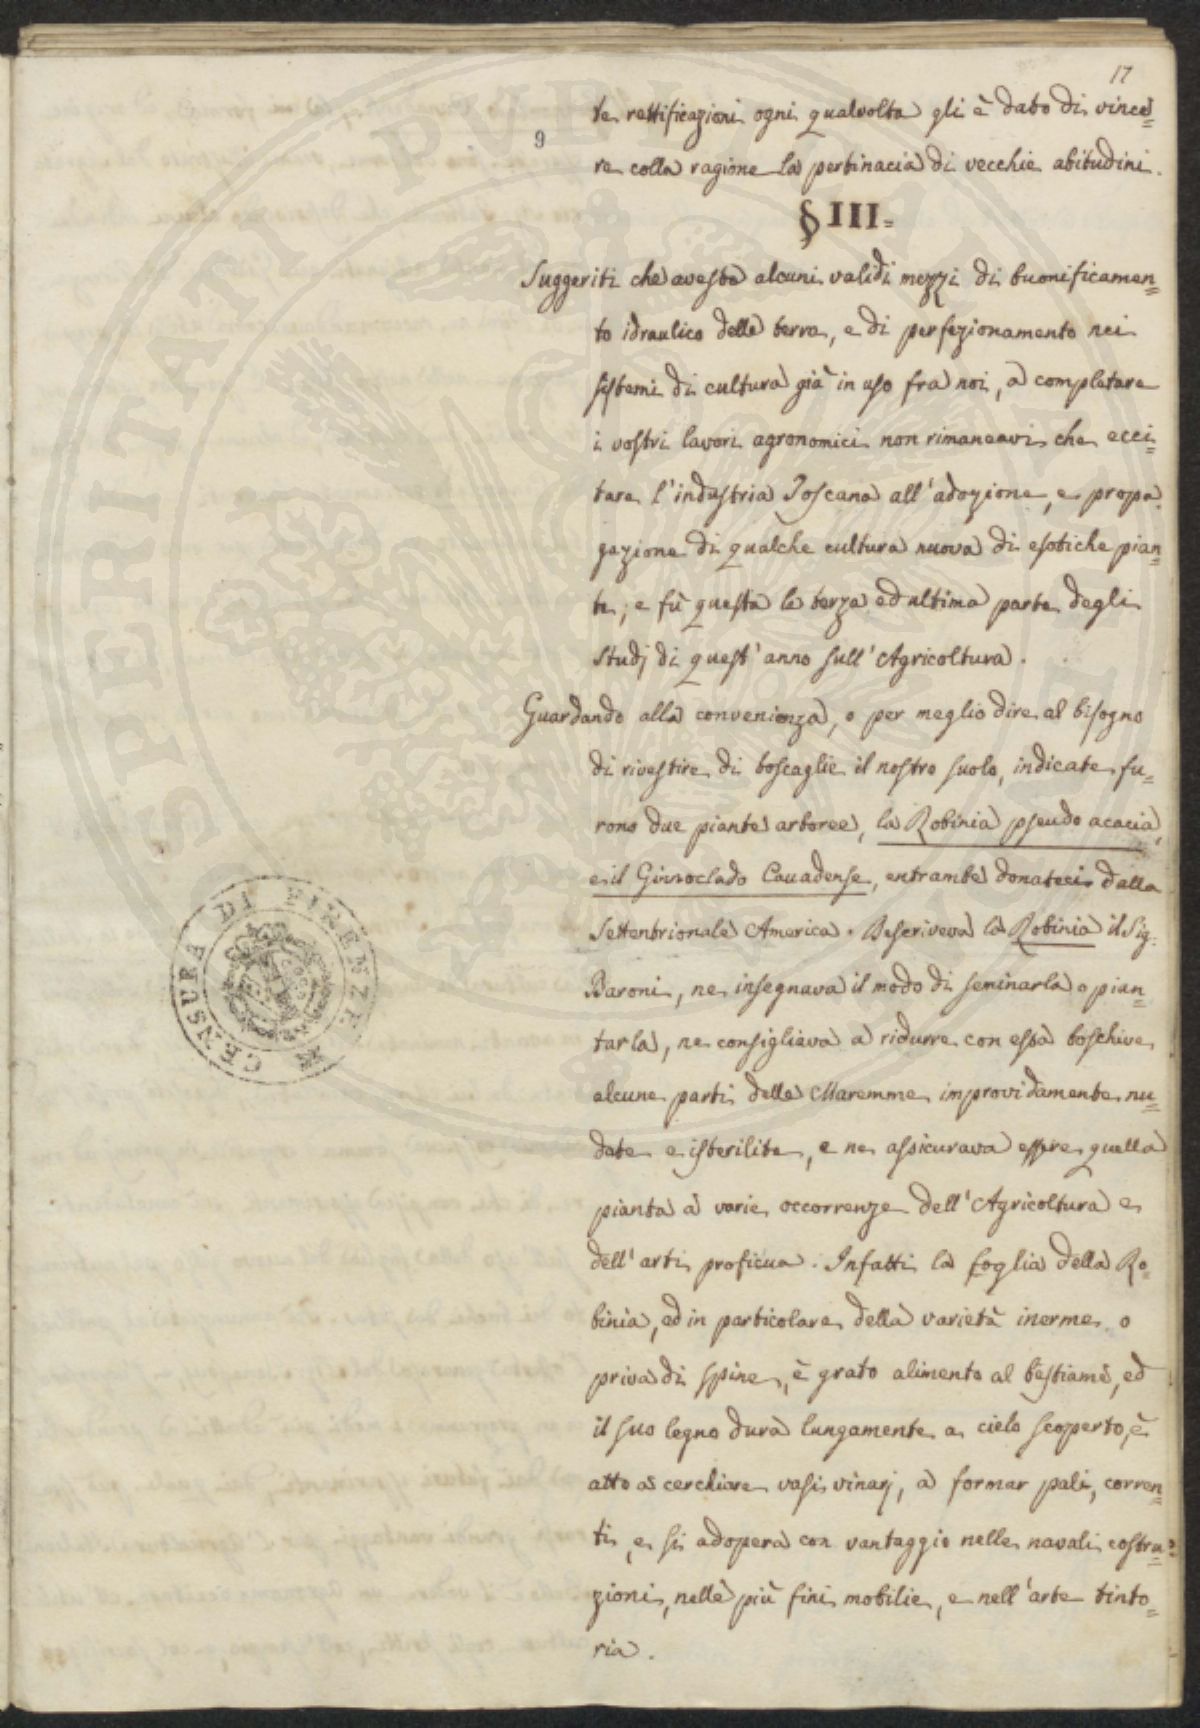 17
9
te rettificazioni ogni qualvolta gli è dato di vince=
re colla ragione la pertinacia di vecchie abitudini.
§ III =
Suggeriti che aveste alcuni validi mezzi di buonificamen=
to idraulico delle terre, e di perfezionamento nei
sistemi di cultura già in uso fra noi, a completare
i vostri lavori agronomici non rimaneavi che ecci=
tare l'industria Toscana all'adozione, e propa=
gazione di qualche cultura nuova di esotiche pian=
te; e fù questa la terza ed ultima parte degli
Studj di quest'anno sull'Agricoltura.
Guardando alla convenienza, o per meglio dire al bisogno
di rivestire di boscaglie il nostro suolo, indicate fu=
rono due piante arboree, la Robinia pseudo acacia,
e il Ginnoclado Canadense, entrambe donateci dalla
Settentrionale America. Descriveva la Robinia il Sig.
Baroni, ne insegnava il modo di seminarla o pian=
tarla, ne consigliava a ridurre con essa boschive
alcune parti delle Maremme improvidamente nu=
date e isterilite, e ne assicurava essere quella
pianta a varie occorrenze dell'Agricoltura e
dell'arti proficua. Infatti la foglia della Ro=
binia, ed in particolare della varietà inerme o
priva di spine, è grato alimento al bestiame, ed
il suo legno dura lungamente a cielo scoperto, è
atto a cerchiare vasi vinarj, a formar pali, corren=
ti, e si adopera con vantaggio nelle navali costru=
zioni, nelle più fini mobilie, e nell'arte tinto=
ria.
CENSURA DI FIRENZE
PROSPERITATI PUBLICAE